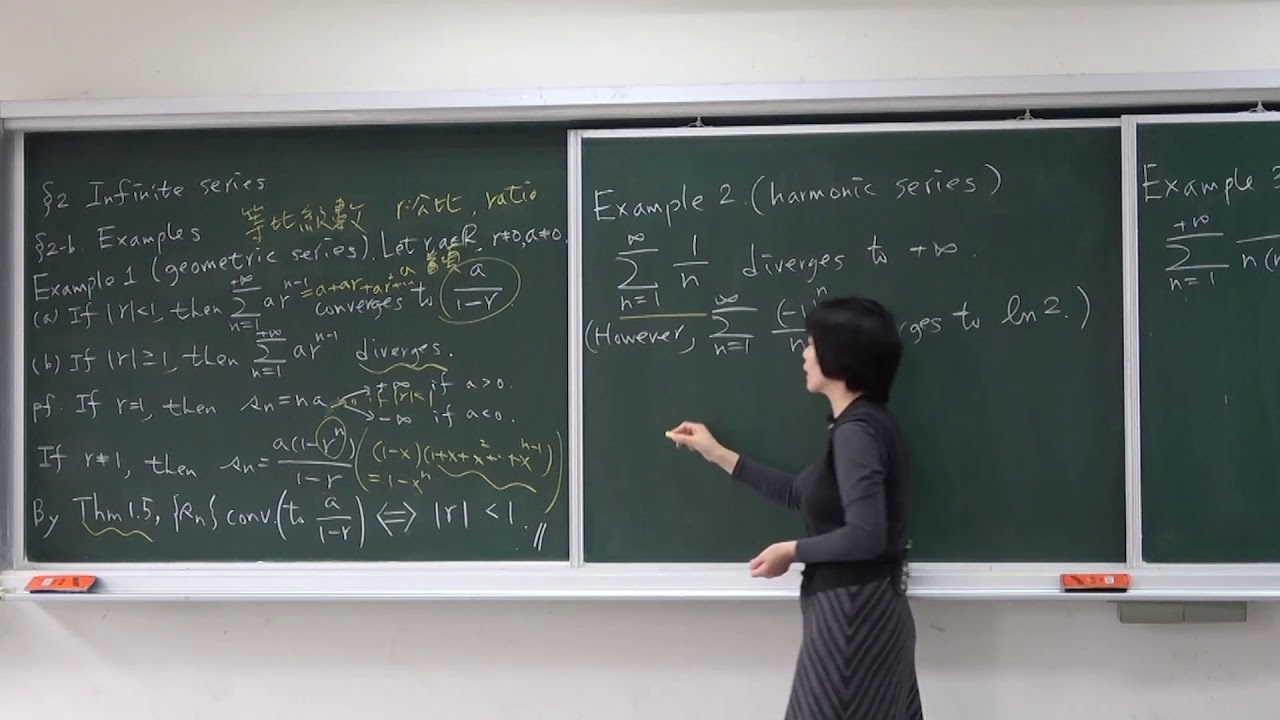 §2 Infinite series
等比級數 r:公比, ratio
§2-b. Examples
Example 1 (geometric series). Let r, a∈ℝ, r≠0, a≠0.
a 首項
(a) If |r|<1, then ∑_{n=1}^{+∞} ar^{n-1} = a+ar+ar²+… converges to a/(1-r)
(b) If |r|≥1, then ∑_{n=1}^{+∞} ar^{n-1} diverges.
pf. If r=1, then sn=na → +∞ if a>0.
→ -∞ if a<0.
If r≠1, then sn = a(1-r^n)/(1-r) ((1-x)(1+x+x²+…+x^{n-1})
=1-x^n)
By Thm 1.5, {Rn} conv. (to a/(1-r)) ⟺ |r| <1. //
Example 2. (harmonic series)
∑_{n=1}^{∞} 1/n diverges to +∞.
(However, ∑_{n=1}^{∞} (-1)^n/n rges to ln 2.)
Example
∑_{n=1}^{+∞} n(